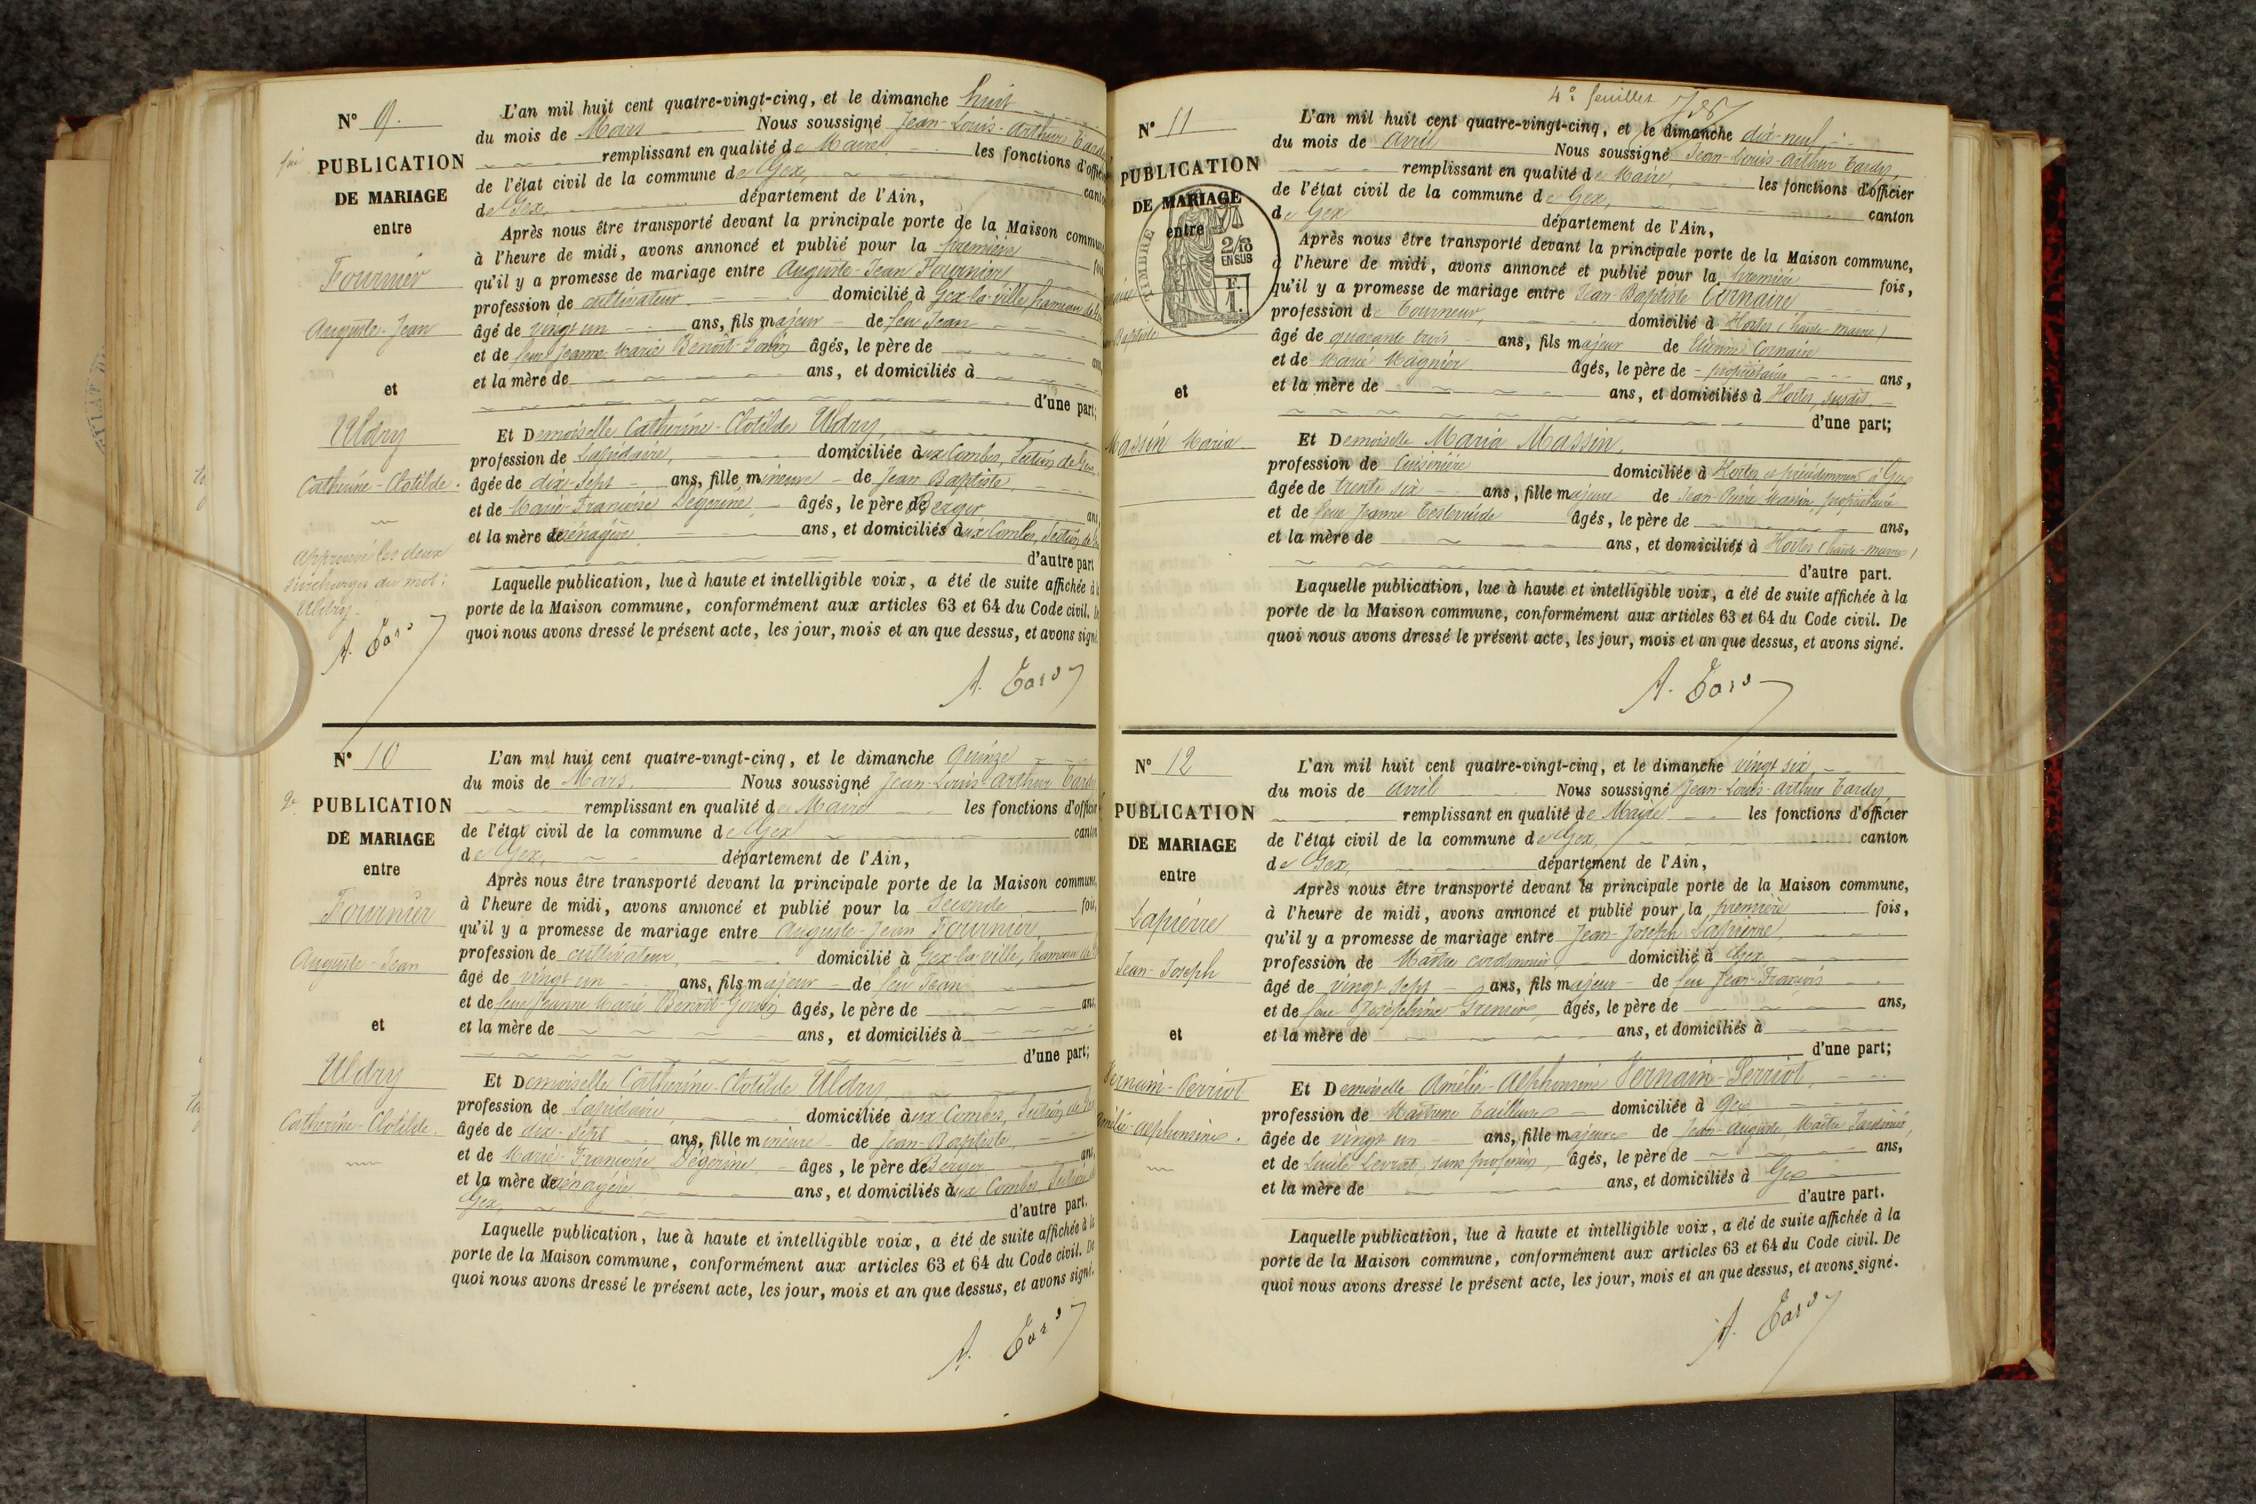 N° 9.
PUBLICATION
DE MARIAGE
entre
Fournier
Auguste-Jean
et
Uldry
Catherine-Clotilde.
Approuvé les deux
surcharges du mot:
Uldry.
A. Tardy
L'an mil huit cent quatre-vingt-cinq, et le dimanche huit
du mois de Mars Nous soussigné Jean-Louis-Arthur Tardy
remplissant en qualité de Maire les fonctions d'officier
de l'état civil de la commune de Gex, canton
de Gex, département de l'Ain,
Après nous être transporté devant la principale porte de la Maison commune,
à l'heure de midi, avons annoncé et publié pour la première fois,
qu'il y a promesse de mariage entre Auguste-Jean Fournier
profession de cultivateur domicilié à Gex-la-ville, hameau de
âgé de vingt un ans, fils majeur de feu Jean
et de feue Jeanne Marie Benoît-Gonin âgés, le père de ans,
et la mère de ans, et domiciliés à
d'une part;
Et Demoiselle Catherine-Clotilde Uldry,
profession de Lapidaire, domiciliée aux Combes, Section de Gex
âgée de dix-sept ans, fille mineure de Jean Baptiste,
et de Marie-Françoise Dégerine, âgés, le père de Berger ans,
et la mère de ménagère ans, et domiciliés aux Combes, Section de
d'autre part
Laquelle publication, lue à haute et intelligible voix, a été de suite affichée à la
porte de la Maison commune, conformément aux articles 63 et 64 du Code civil. De
quoi nous avons dressé le présent acte, les jour, mois et an que dessus, et avons signé.
A. Tardy
N° 10
PUBLICATION
DE MARIAGE
entre
Fournier
Auguste-Jean
et
Uldry
Catherine-Clotilde.
L'an mil huit cent quatre-vingt-cinq, et le dimanche quinze
du mois de Mars. Nous soussigné Jean-Louis-Arthur Tardy
remplissant en qualité de Maire les fonctions d'officier
de l'état civil de la commune de Gex canton
de Gex, département de l'Ain,
Après nous être transporté devant la principale porte de la Maison commune,
à l'heure de midi, avons annoncé et publié pour la Seconde fois,
qu'il y a promesse de mariage entre Auguste-Jean Fournier,
profession de cultivateur, domicilié à Gex-la-ville, hameau de
âgé de vingt un ans, fils majeur de feu Jean
et de feue Jeanne Marie Benoît-Gonin âgés, le père de ans,
et la mère de ans, et domiciliés à
d'une part;
Et Demoiselle Catherine-Clotilde Uldry,
profession de Lapidaire, domiciliée aux Combes, Section de Gex
âgée de dix-sept ans, fille mineure de Jean-Baptiste,
et de Marie-Françoise Dégerine, âges, le père de Berger ans,
et la mère de ménagère ans, et domiciliés aux Combes, Section de
Gex, d'autre part.
Laquelle publication, lue à haute et intelligible voix, a été de suite affichée à la
porte de la Maison commune, conformément aux articles 63 et 64 du Code civil. De
quoi nous avons dressé le présent acte, les jour, mois et an que dessus, et avons signé.
A. Tardy
4e feuillet
N° 11
PUBLICATION
DE MARIAGE
entre
TIMBRE
2/10
EN SUS
F.
1.
Baptiste
et
Massin Maria
L'an mil huit cent quatre-vingt-cinq, et le dimanche dix-neuf,
du mois de Avril Nous soussigné Jean-Louis-Arthur Tardy,
remplissant en qualité de Maire, les fonctions d'officier
de l'état civil de la commune de Gex, canton
de Gex département de l'Ain,
Après nous être transporté devant la principale porte de la Maison commune,
à l'heure de midi, avons annoncé et publié pour la première fois,
qu'il y a promesse de mariage entre Jean-Baptiste Cornaire
profession de Tourneur, domicilié à Hortes (haute-marne)
âgé de quarante trois ans, fils majeur de Etienne Cornaire
et de Marie Magnier âgés, le père de propriétaire ans,
et la mère de ans, et domiciliés à Hortes, susdit
d'une part;
Et Demoiselle Maria Massin,
profession de Cuisinière domiciliée à Hortes et précédemment à Gex
âgée de trente six ans, fille majeure de Jean-Pierre Massin, propriétaire
et de feue Jeanne âgés, le père de ans,
et la mère de ans, et domiciliés à Hortes (haute-marne)
d'autre part.
Laquelle publication, lue à haute et intelligible voix, a été de suite affichée à la
porte de la Maison commune, conformément aux articles 63 et 64 du Code civil. De
quoi nous avons dressé le présent acte, les jour, mois et an que dessus, et avons signé.
A. Tardy
N° 12
PUBLICATION
DE MARIAGE
entre
Lapierre
Jean-Joseph
et
Vernain-Perriot
Amélie-Alphonsine.
L'an mil huit cent quatre-vingt-cinq, et le dimanche vingt six
du mois de Avril Nous soussigné Jean-Louis-Arthur Tardy,
remplissant en qualité de Maire les fonctions d'officier
de l'état civil de la commune de Gex, canton
de Gex, département de l'Ain,
Après nous être transporté devant la principale porte de la Maison commune,
à l'heure de midi, avons annoncé et publié pour la première fois,
qu'il y a promesse de mariage entre Jean-Joseph Lapierre,
profession de Maître cordonnier, domicilié à Gex
âgé de vingt sept ans, fils majeur de feu Jean-François
et de feue Joséphine Grenier, âgés, le père de ans,
et la mère de ans, et domiciliés à
d'une part;
Et Demoiselle Amélie-Alphonsine Vernain-Perriot,
profession de Maîtresse tailleuse domiciliée à Gex
âgée de vingt un ans, fille majeure de Jean-Auguste, Maître Jardinier,
et de Lucile Levrat, sans profession, âgés, le père de ans,
et la mère de ans, et domiciliés à Gex
d'autre part.
Laquelle publication, lue à haute et intelligible voix, a été de suite affichée à la
porte de la Maison commune, conformément aux articles 63 et 64 du Code civil. De
quoi nous avons dressé le présent acte, les jour, mois et an que dessus, et avons signé.
A. Tardy